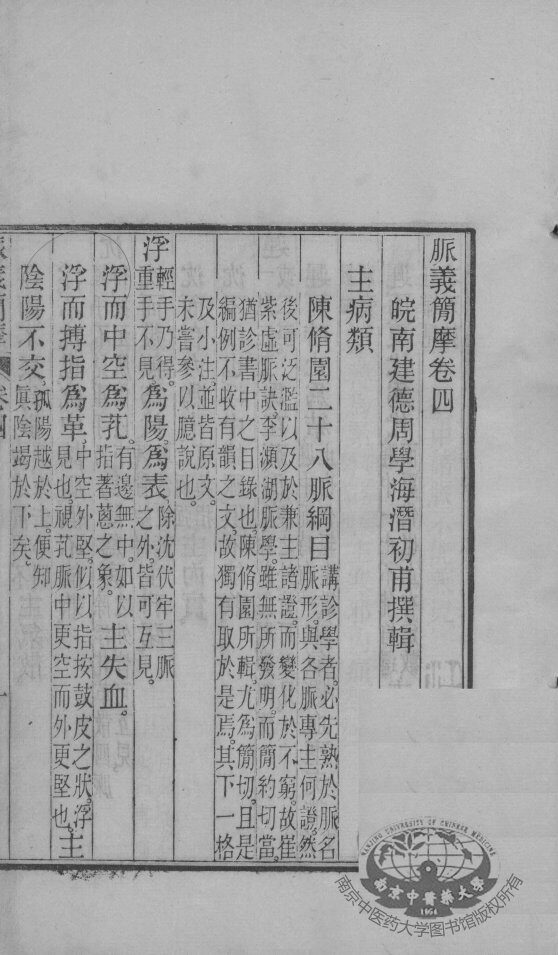 脈義簡摩卷四
皖南建德周學海潛初甫撰輯
主病類
陳脩園二十八脈綱目講診學者必先熟於脈名
脈形與各脈專主何證然
後可泛濫以及於兼主諸證而變化於不窮故崔
紫虛脈訣李瀕湖脈學雖無所發明而簡約切當
猶診書中之目錄也陳脩園所輯尤爲簡切且是
編例不收有韻之文故獨有取於是焉其下一格
及小注並皆原文
未嘗參以臆說也
浮輕手乃得
重手不見爲陽爲表除沈伏牢三脈
之外皆可互見
浮而中空爲芤有邊無中如以
指著蔥之象主失血
浮而搏指爲革中空外堅似以指按鼓皮之狀浮
見也視芤脈中更空而外更堅也主
陰陽不交孤陽越於上便知
眞陰竭於下矣
南京中醫藥大學
1954
NANJING UNIVERSITY OF CHINESE MEDICINE
南京中医药大学图书馆版权所有